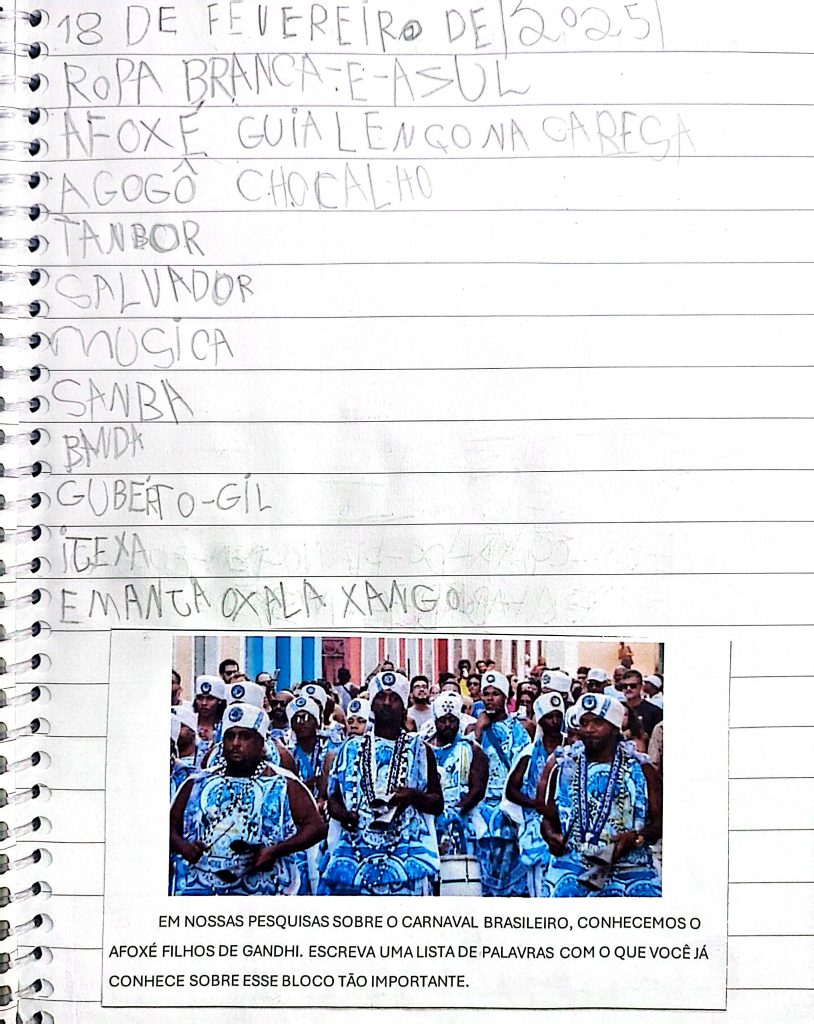 18 DE FEVEREIRO DE 2025
ROPA BRANCA-E-ASUL
AFOXÉ GUIA LENÇO NA CABESA
AGOGÔ CHOCALHO
TANBOR
SALVADOR
MUSICA
SANBA
BANDA
GUBERTO-GIL
ITEXA
EMANTA OXALA XANGO
EM NOSSAS PESQUISAS SOBRE O CARNAVAL BRASILEIRO, CONHECEMOS O
AFOXÉ FILHOS DE GANDHI. ESCREVA UMA LISTA DE PALAVRAS COM O QUE VOCÊ JÁ
CONHECE SOBRE ESSE BLOCO TÃO IMPORTANTE.